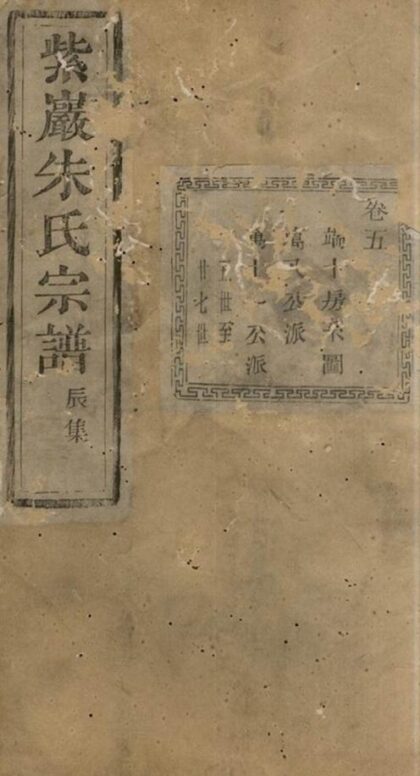 紫巖朱氏宗譜
辰集
卷五
十房系圖
萬八公派
萬十一公派
五世至
廿七世